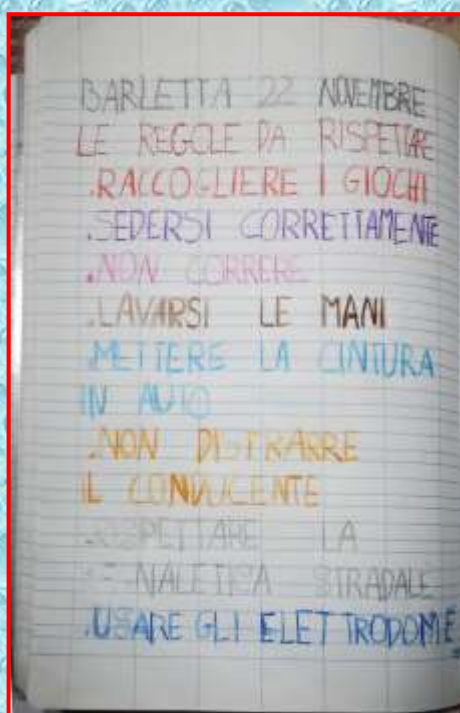 BARLETTA 22 NOVEMBRE
LE REGOLE DA RISPETTARE
.RACCOGLIERE I GIOCHI
.SEDERSI CORRETTAMENTE
.NON CORRERE
.LAVARSI LE MANI
.METTERE LA CINTURA
IN AUTO
.NON DISTRARRE
IL CONDUCENTE
.RISPETTARE LA
SEGNALETICA STRADALE
.USARE GLI ELETTRODOME